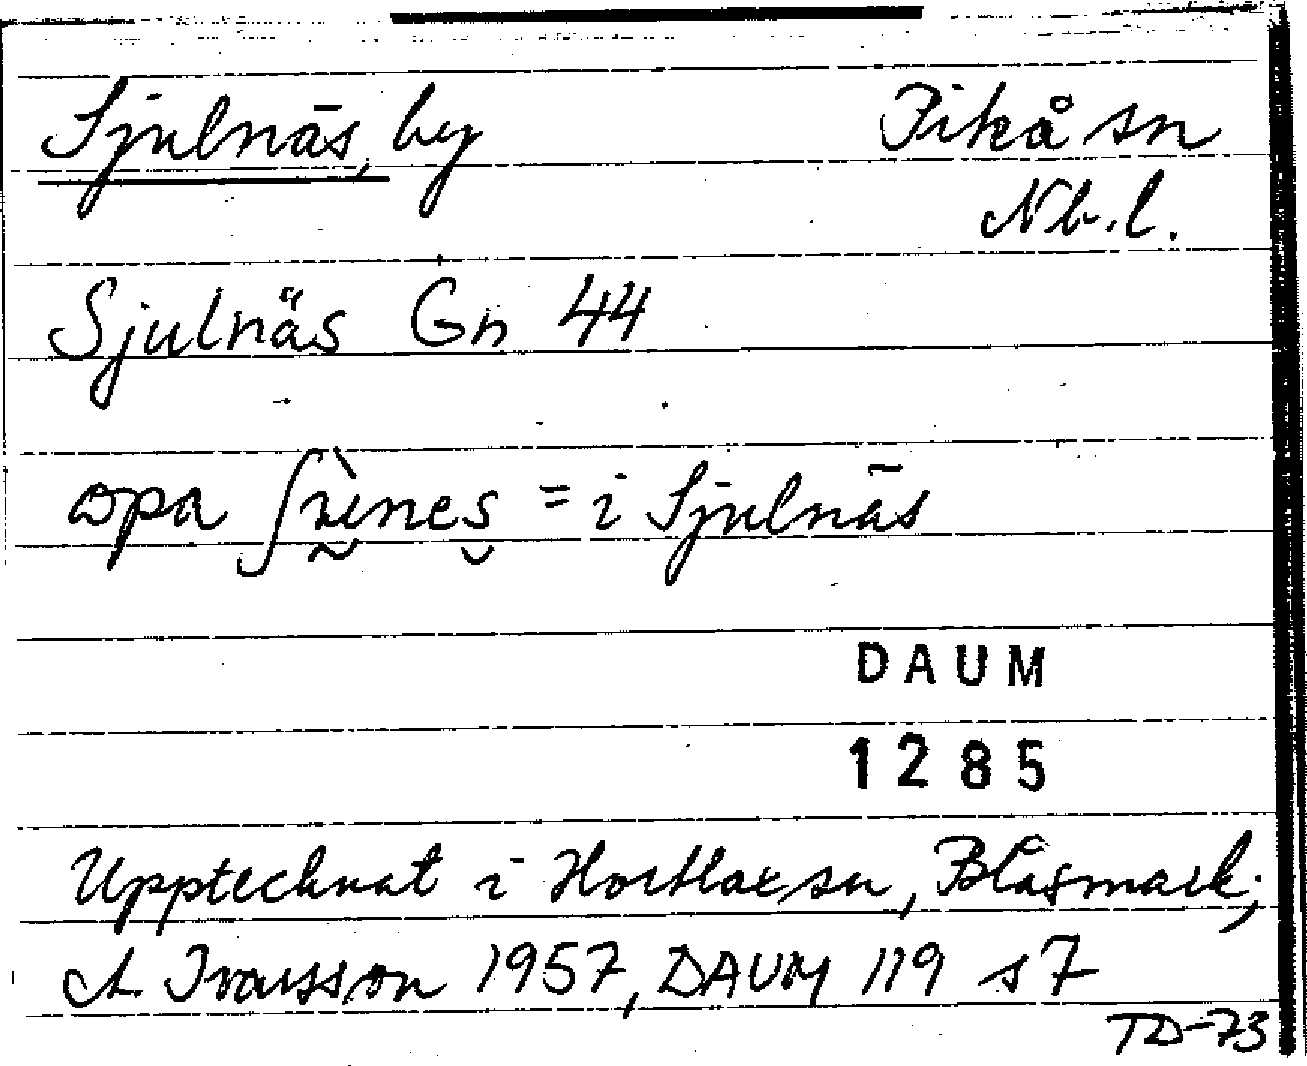 Sjulnäs, by Piteå sn
Nb.l.
Sjulnäs Gn 44
opa = i Sjulnäs
DAUM
1285
Upptecknat i Hortlax sn, Blåsmark;
A. Ivarsson 1957, DAUM 119 s 7
TD-73